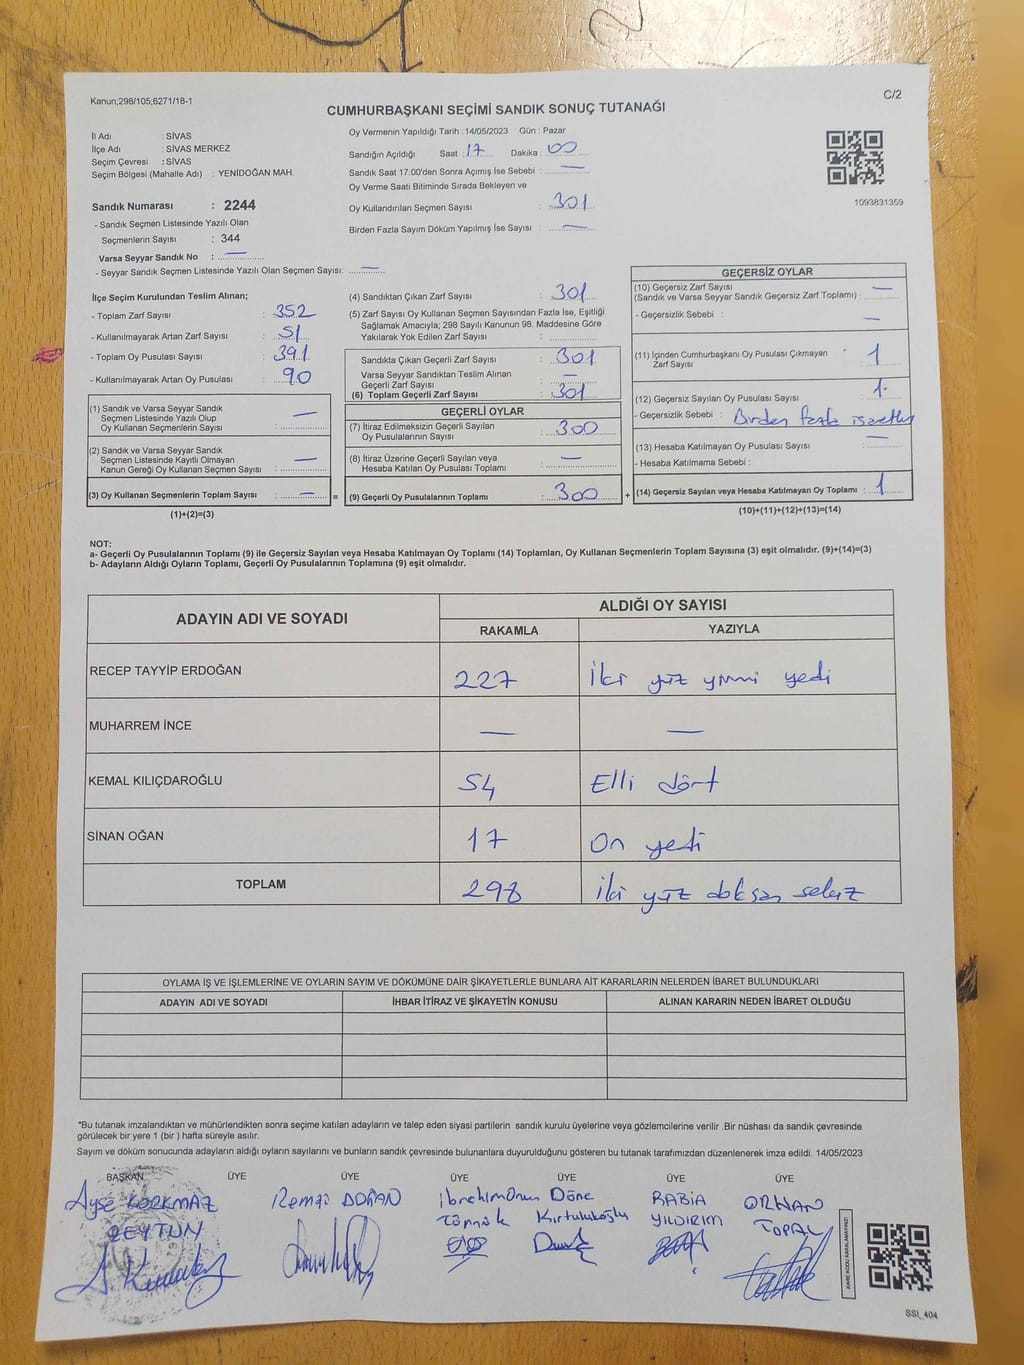 Kanun;298/105;6271/18-1
C/2
CUMHURBAŞKANI SEÇİMİ SANDIK SONUÇ TUTANAĞI
İl Adı : SİVAS
İlçe Adı : SİVAS MERKEZ
Seçim Çevresi : SİVAS
Seçim Bölgesi (Mahalle Adı) : YENİDOĞAN MAH.
Sandık Numarası : 2244
- Sandık Seçmen Listesinde Yazılı Olan
Seçmenlerin Sayısı : 344
Varsa Seyyar Sandık No : —
- Seyyar Sandık Seçmen Listesinde Yazılı Olan Seçmen Sayısı: —
Oy Vermenin Yapıldığı Tarih : 14/05/2023 Gün : Pazar
Sandığın Açıldığı Saat : 17 Dakika : 00
Sandık Saat 17.00'den Sonra Açımış İse Sebebi : —
Oy Verme Saati Bitiminde Sırada Bekleyen ve
Oy Kullandırılan Seçmen Sayısı : 301
Birden Fazla Sayım Döküm Yapılmış İse Sayısı : —
1093831359
İlçe Seçim Kurulundan Teslim Alınan;
- Toplam Zarf Sayısı : 352
- Kullanılmayarak Artan Zarf Sayısı : 51
- Toplam Oy Pusulası Sayısı : 391
- Kullanılmayarak Artan Oy Pusulası : 90
(1) Sandık ve Varsa Seyyar Sandık
Seçmen Listesinde Yazılı Olup
Oy Kullanan Seçmenlerin Sayısı : —
(2) Sandık ve Varsa Seyyar Sandık
Seçmen Listesinde Kayıtlı Olmayan
Kanun Gereği Oy Kullanan Seçmen Sayısı : —
(3) Oy Kullanan Seçmenlerin Toplam Sayısı : — =
(1)+(2)=(3)
(4) Sandıktan Çıkan Zarf Sayısı : 301
(5) Zarf Sayısı Oy Kullanan Seçmen Sayısından Fazla İse, Eşitliği
Sağlamak Amacıyla; 298 Sayılı Kanunun 98. Maddesine Göre
Yakılarak Yok Edilen Zarf Sayısı :
Sandıkta Çıkan Geçerli Zarf Sayısı : 301
Varsa Seyyar Sandıktan Teslim Alınan
Geçerli Zarf Sayısı : —
(6) Toplam Geçerli Zarf Sayısı : 301
GEÇERLİ OYLAR
(7) İtiraz Edilmeksizin Geçerli Sayılan
Oy Pusulalarının Sayısı : 300
(8) İtiraz Üzerine Geçerli Sayılan veya
Hesaba Katılan Oy Pusulası Toplamı : —
(9) Geçerli Oy Pusulalarının Toplamı : 300 +
GEÇERSİZ OYLAR
(10) Geçersiz Zarf Sayısı
(Sandık ve Varsa Seyyar Sandık Geçersiz Zarf Toplamı) : —
- Geçersizlik Sebebi : —
(11) İçinden Cumhurbaşkanı Oy Pusulası Çıkmayan
Zarf Sayısı : 1
(12) Geçersiz Sayılan Oy Pusulası Sayısı : 1
- Geçersizlik Sebebi : Birden fazla
(13) Hesaba Katılmayan Oy Pusulası Sayısı : —
- Hesaba Katılmama Sebebi :
(14) Geçersiz Sayılan veya Hesaba Katılmayan Oy Toplamı : 1
(10)+(11)+(12)+(13)=(14)
NOT:
a- Geçerli Oy Pusulalarının Toplamı (9) ile Geçersiz Sayılan veya Hesaba Katılmayan Oy Toplamı (14) Toplamları, Oy Kullanan Seçmenlerin Toplam Sayısına (3) eşit olmalıdır. (9)+(14)=(3)
b- Adayların Aldığı Oyların Toplamı, Geçerli Oy Pusulalarının Toplamına (9) eşit olmalıdır.
ADAYIN ADI VE SOYADI ALDIĞI OY SAYISI
RAKAMLA YAZIYLA
RECEP TAYYİP ERDOĞAN 227 İki yüz yirmi yedi
MUHARREM İNCE — —
KEMAL KILIÇDAROĞLU 54 Elli dört
SİNAN OĞAN 17 On yedi
TOPLAM 298 iki yüz doksan sekiz
OYLAMA İŞ VE İŞLEMLERİNE VE OYLARIN SAYIM VE DÖKÜMÜNE DAİR ŞİKAYETLERLE BUNLARA AİT KARARLARIN NELERDEN İBARET BULUNDUKLARI
ADAYIN ADI VE SOYADI İHBAR İTİRAZ VE ŞİKAYETİN KONUSU ALINAN KARARIN NEDEN İBARET OLDUĞU
*Bu tutanak imzalandıktan ve mühürlendikten sonra seçime katılan adayların ve talep eden siyasi partilerin sandık kurulu üyelerine veya gözlemcilerine verilir .Bir nüshası da sandık çevresinde
görülecek bir yere 1 (bir ) hafta süreyle asılır.
Sayım ve döküm sonucunda adayların aldığı oyların sayılarını ve bunların sandık çevresinde bulunanlara duyurulduğunu gösteren bu tutanak tarafımızdan düzenlenerek imza edildi. 14/05/2023
BAŞKAN ÜYE ÜYE ÜYE ÜYE ÜYE ÜYE
Ayşe KORKMAZ Remzi DOĞAN Döne RABİA ORHAN
ZEYTUN YILDIRIM TOPAL
KARE KODU KARALAMAYINIZ!
SSI_404